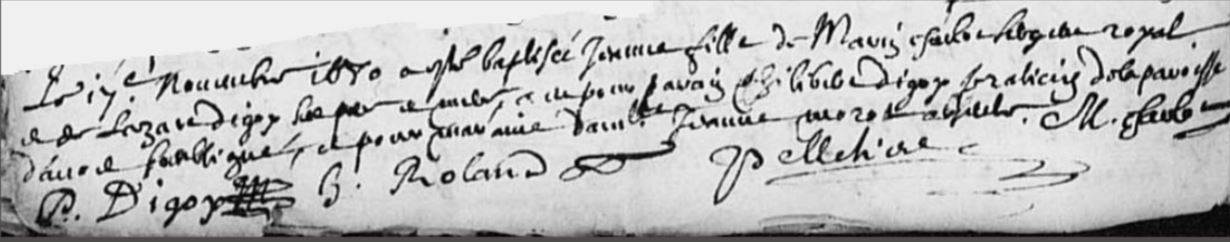 Le ij.e Novembre 1680 a esté baptisée Jeanne fille de Marin charlo sergeant royal
et de Lazare digoy ses pere et mere, a eu pour parain philibibe digoy praticien de la paroisse
d'avoit et pour maraine dam.lle Jeanne morot M. charlo
P. Digoy h. Roland Pelletier